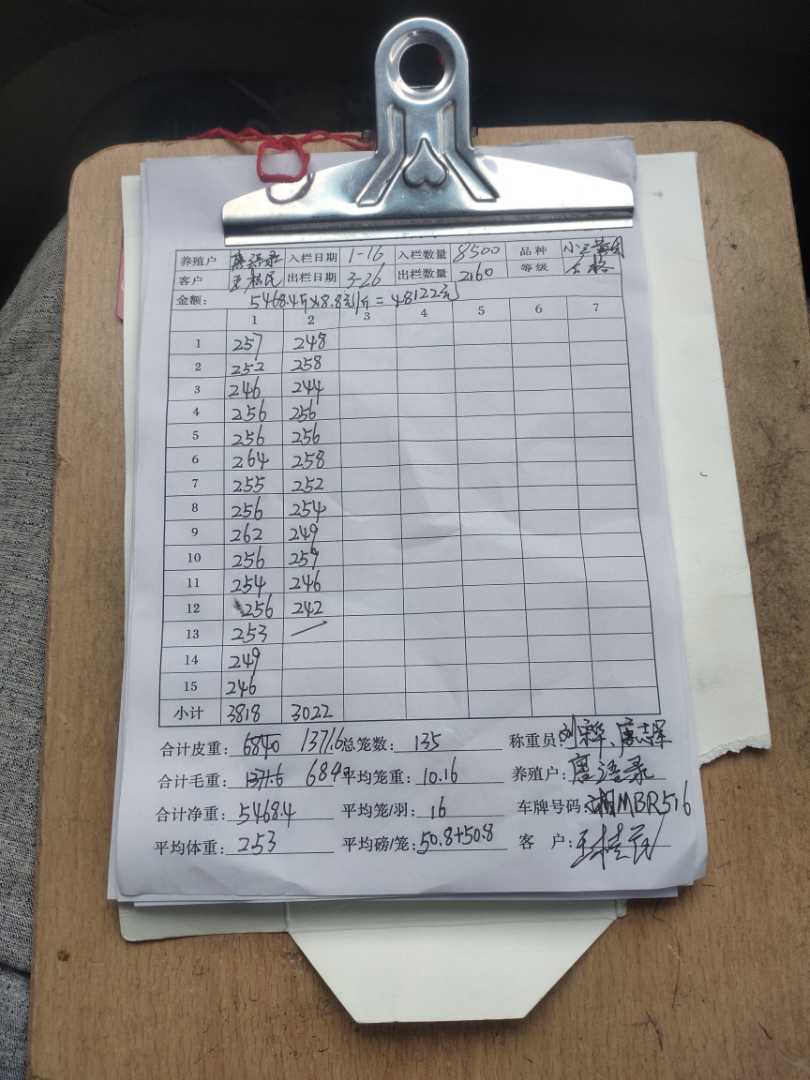 养殖户 唐语录 入栏日期 1-16 入栏数量 8500 品种
客户 王桂民 出栏日期 3-26 出栏数量 2160 等级 合格
金额: 5468.4斤×8.8元/斤=48122元
1 2 3 4 5 6 7
1 257 248
2 252 258
3 246 244
4 256 256
5 256 256
6 264 258
7 255 252
8 256 254
9 262 249
10 256 259
11 254 246
12 256 242
13 253
14 249
15 246
小计 3818 3022
合计皮重: 6840 1371.6 总笼数: 135 称重员:
合计毛重: 1371.6 6840 平均笼重: 10.16 养殖户: 唐语录
合计净重: 5468.4 平均笼/羽: 16 车牌号码: 湘MBR516
平均体重: 253 平均磅/笼: 50.8+50.8 客 户: 王桂民